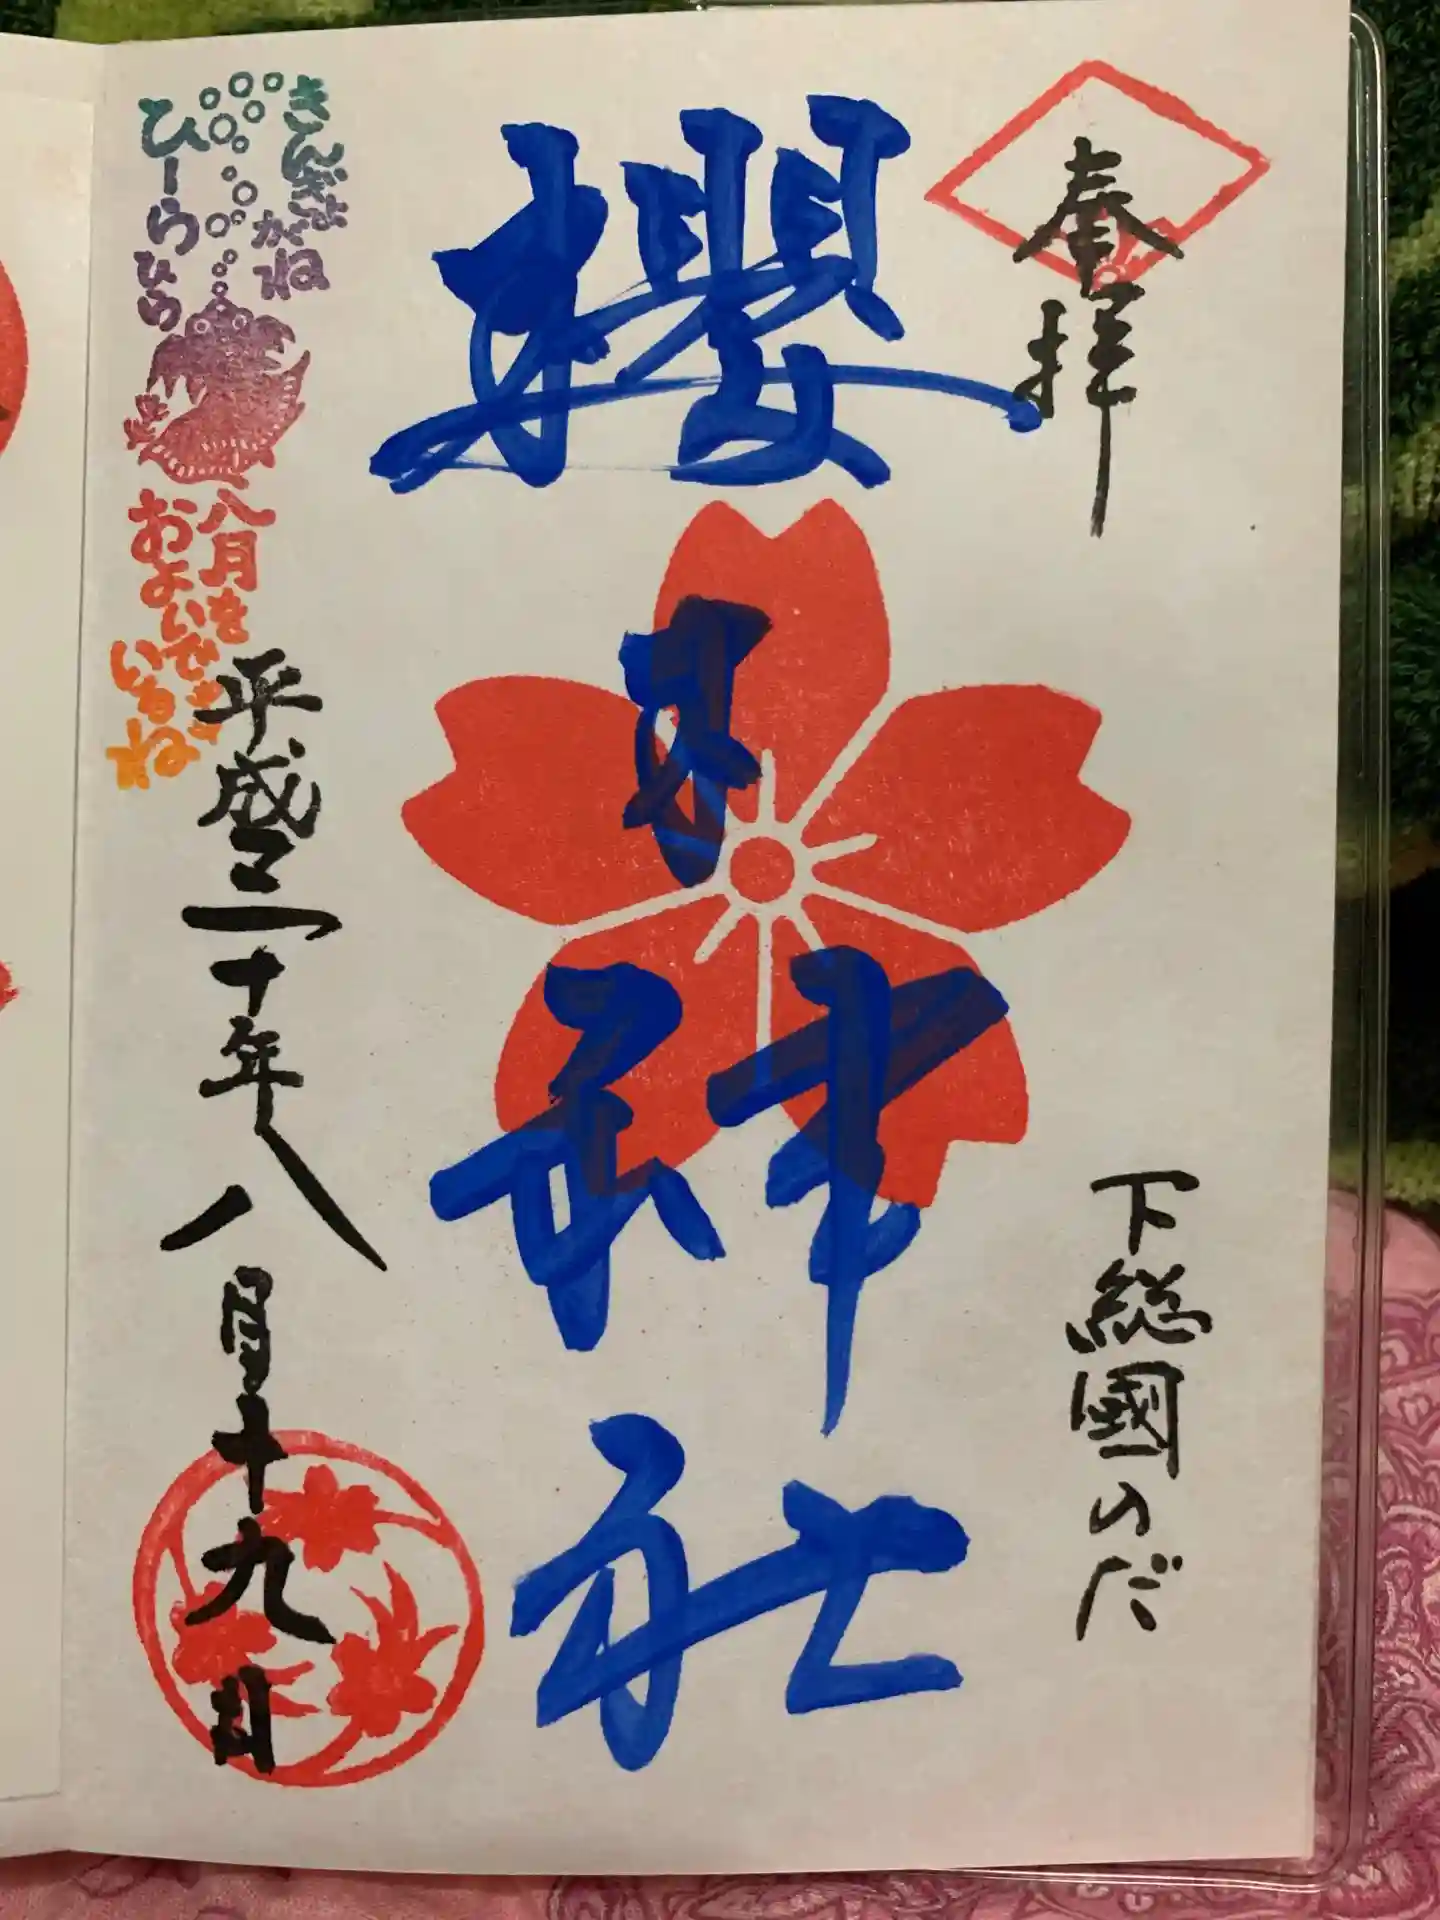 奉拝
下総國のだ
櫻木神社
平成三十年八月十九日
きんぎょ
がね
ひーらひら
八月を
およいで
いるね